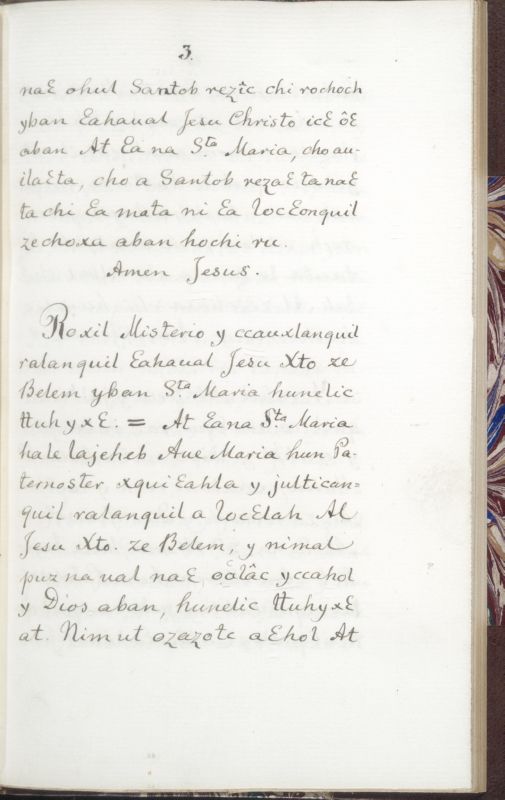 3.
naƐ ohul Santob reẓîc chi rochoch
yban Ɛahaual Jesu Christo icƐ ôƐ
aban At Ɛa na Sta Maria, cho au-
ilaƐta, cho a Santob reẓaƐ ta naƐ
ta chi Ɛa mata ni Ɛa locƐonquil
ze choxa aban hochi ru
Amen Jesus.
Roxil Misterio y ccauxlanquil
ralanquil Ɛahaual Jesu Xto ze
Belem yban Sta Maria hunelic
ttuhyxƐ. = At Ɛana Sta Maria
hale lajeheb Aue Maria hun Pa-
ternoster xqui Ɛahla y jultican=
quil ralanquil a locƐlah Al
Jesu Xto. ze Belem, y nimal
puz na ual naƐ, oâlâc yccahol
y Dios aban, hunelic ttuhyxƐ
at. Nim ut oẓaẓotc aƐhol At